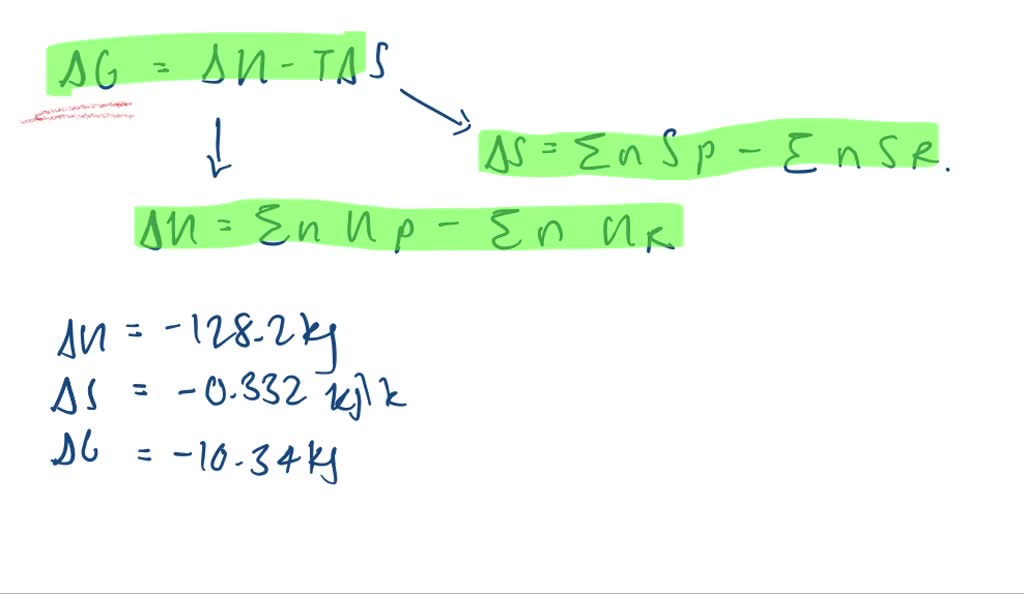 ΔG = ΔH - TΔS
ΔS = Σn Sp - Σn SR.
ΔH = Σn Hp - Σn HR
ΔH = -128.2 kj
ΔS = -0.332 kj\k
ΔG = -10.34 kj